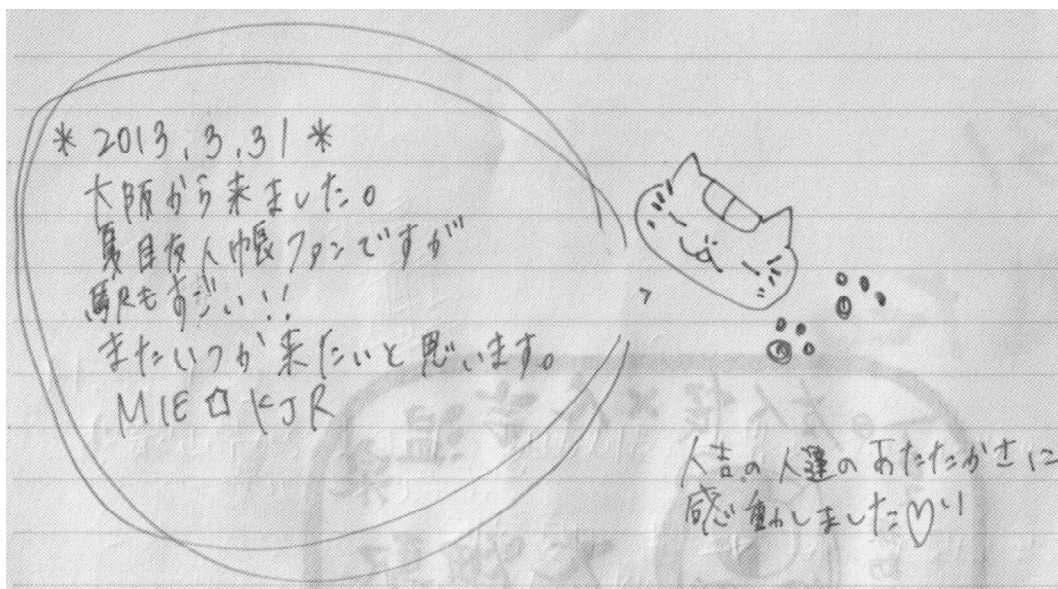 * 2013.3.31 *
大阪から来ました。
夏目友人帳ファンですが
駅もすごい!!
またいつか来たいと思います。
MIE☆KJR
人吉の人達のあたたかさに
感動しました♡!!